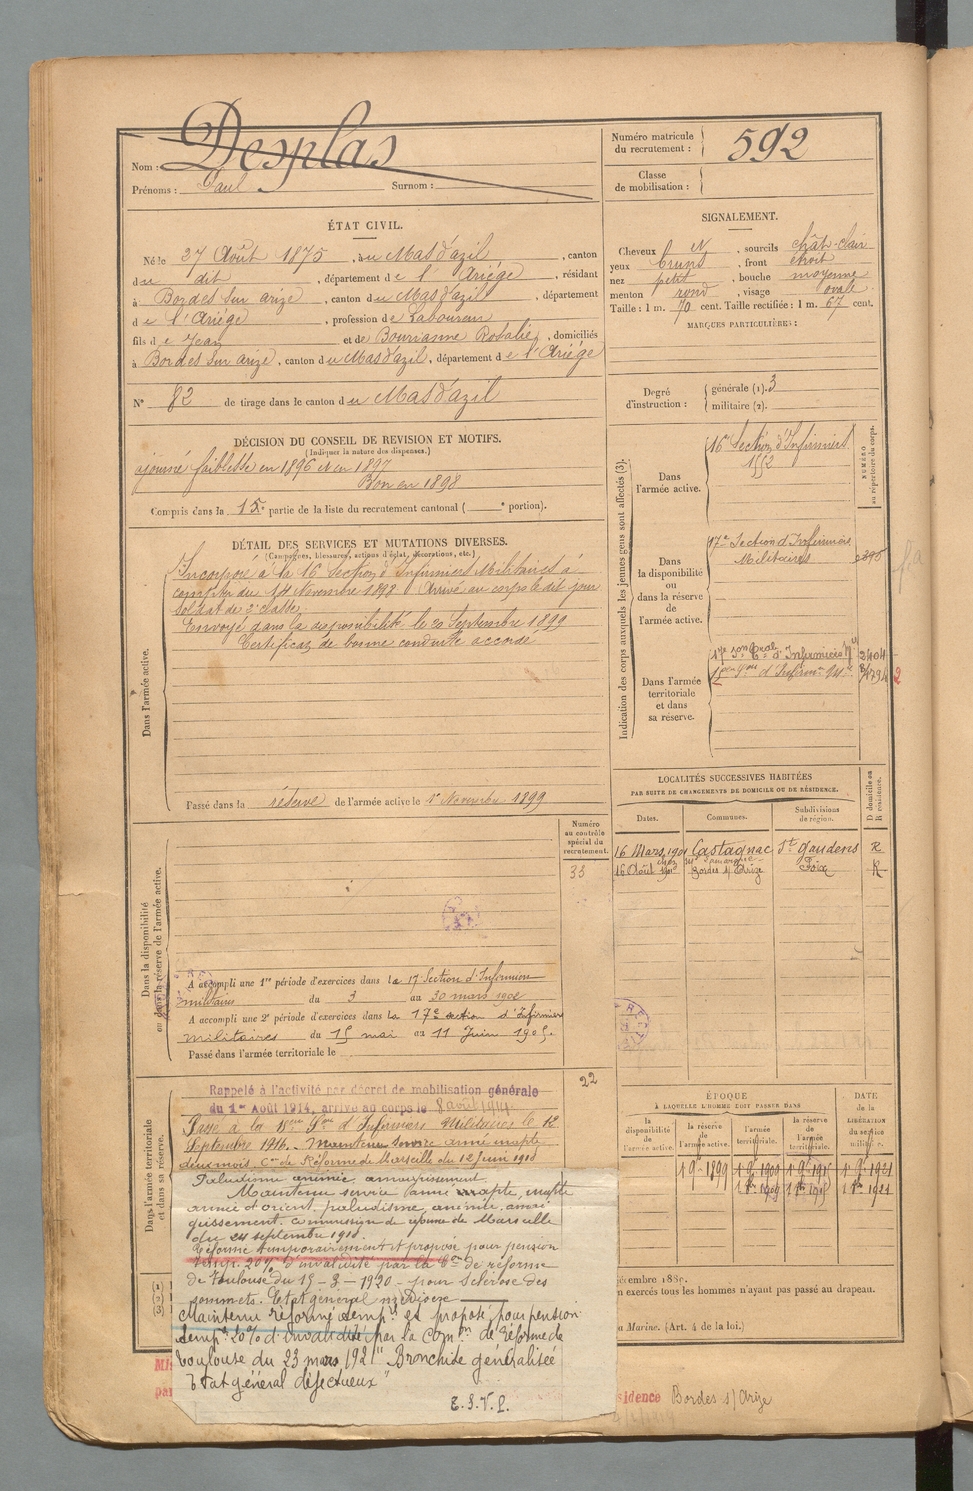 Nom : Desplas
Prénoms : Paul Surnom :
Numéro matricule du recrutement : 592
Classe de mobilisation :
ÉTAT CIVIL.
Né le 27 Août 1875, à u Mas d'azil, canton
du dit, département de l'Ariége, résidant
à Bordes sur arize, canton du Mas d'azil, département
de l'Ariége, profession de Laboureur
fils de Jean et de Bourianne Rosalie, domiciliés
à Bordes sur arize, canton du Mas d'azil, département de l'Ariége
N° 82 de tirage dans le canton du Mas d'azil
SIGNALEMENT.
Cheveux et, sourcils chât-clair
yeux bruns, front étroit
nez petit, bouche moyenne
menton rond, visage ovale
Taille : 1 m. 70 cent. Taille rectifiée : 1 m. 67 cent.
MARQUES PARTICULIÈRES :
Degré d'instruction : générale (1). 3
militaire (2).
DÉCISION DU CONSEIL DE REVISION ET MOTIFS.
(Indiquer la nature des dispenses.)
ajourné faiblesse en 1896 et en 1897
Bon en 1898
Compris dans la 15e partie de la liste du recrutement cantonal ( e portion).
DÉTAIL DES SERVICES ET MUTATIONS DIVERSES.
(Campagnes, blessures, actions d'éclat, décorations, etc.)
Dans l'armée active.
Incorporé à la 16e Section d'Infirmiers Militaires à
compter du 14 Novembre 1898. Arrivé au corps le dit jour
Soldat de 2e classe.
Envoyé dans la disponibilité le 20 Septembre 1899
Certificat de bonne conduite accordé
Passé dans la réserve de l'armée active le 1er Novembre 1899
Indication des corps auxquels les jeunes gens sont affectés (3).
NUMÉRO au répertoire du corps.
Dans l'armée active.
16e Section d'Infirmiers
1552
Dans la disponibilité ou dans la réserve de l'armée active.
17e Section d'Infirmiers
Militaires
Dans l'armée territoriale et dans sa réserve.
17e Son Tale d'Infirmiers Mres 2404
LOCALITÉS SUCCESSIVES HABITÉES
PAR SUITE DE CHANGEMENTS DE DOMICILE OU DE RÉSIDENCE.
Dates. Communes. Subdivisions de région. D domicile ou R résidence.
16 Mars 1901 Castagnac St Gaudens R
16 Août 1903 Bordes s/ Arize Foix R
Numéro au contrôle spécial du recrutement.
33
Dans la disponibilité ou dans la réserve de l'armée active.
A accompli une 1re période d'exercices dans la 17 Section d'Infirmiers
militaires du 3 au 30 mars 1902
A accompli une 2e période d'exercices dans la 17e section d'Infirmiers
militaires du 15 mai au 11 Juin 1905.
Passé dans l'armée territoriale le
22
Dans l'armée territoriale et dans sa réserve.
Rappelé à l'activité par décret de mobilisation générale
du 1er Août 1914, arrivé au corps le 8 août 1914.
Passé à la 15eme Son d'Infirmiers Militaires le 12
Septembre 1916. Maintenu service armé inapte
deux mois. Con de Réforme de Marseille du 12 Juin 1918
Paludisme anémie, amaigrissement
Maintenu service armé inapte, inapte
armée d'orient. paludisme, anémie, amai-
grissement. Commission de réforme de Marseille
du 24 septembre 1918.
Réformé temporairement et proposé pour pension
temp. 20% d'invalidité par la Con de réforme
de Toulouse du 15-3-1920 - pour Sclérose des
sommets. Etat général médiocre
Maintenu réformé tempre et proposé pour pension
temp. 20% d'invalidité par la Comon de Réforme de
Toulouse du 23 mars 1921 "Bronchite généralisée
Etat général défectueux"
T.S.V.P.
ÉPOQUE
À LAQUELLE L'HOMME DOIT PASSER DANS
la disponibilité de l'armée active. la réserve de l'armée active. l'armée territoriale. la réserve de l'armée territoriale.
DATE de la LIBÉRATION du service militaire.
1 9e 1899 1 9e 1909 1 9e 1915 1 9e 1921
écembre 1889.
n exercés tous les hommes n'ayant pas passé au drapeau.
a Marine. (Art. 4 de la loi.)
sidence Bordes s/ Arize